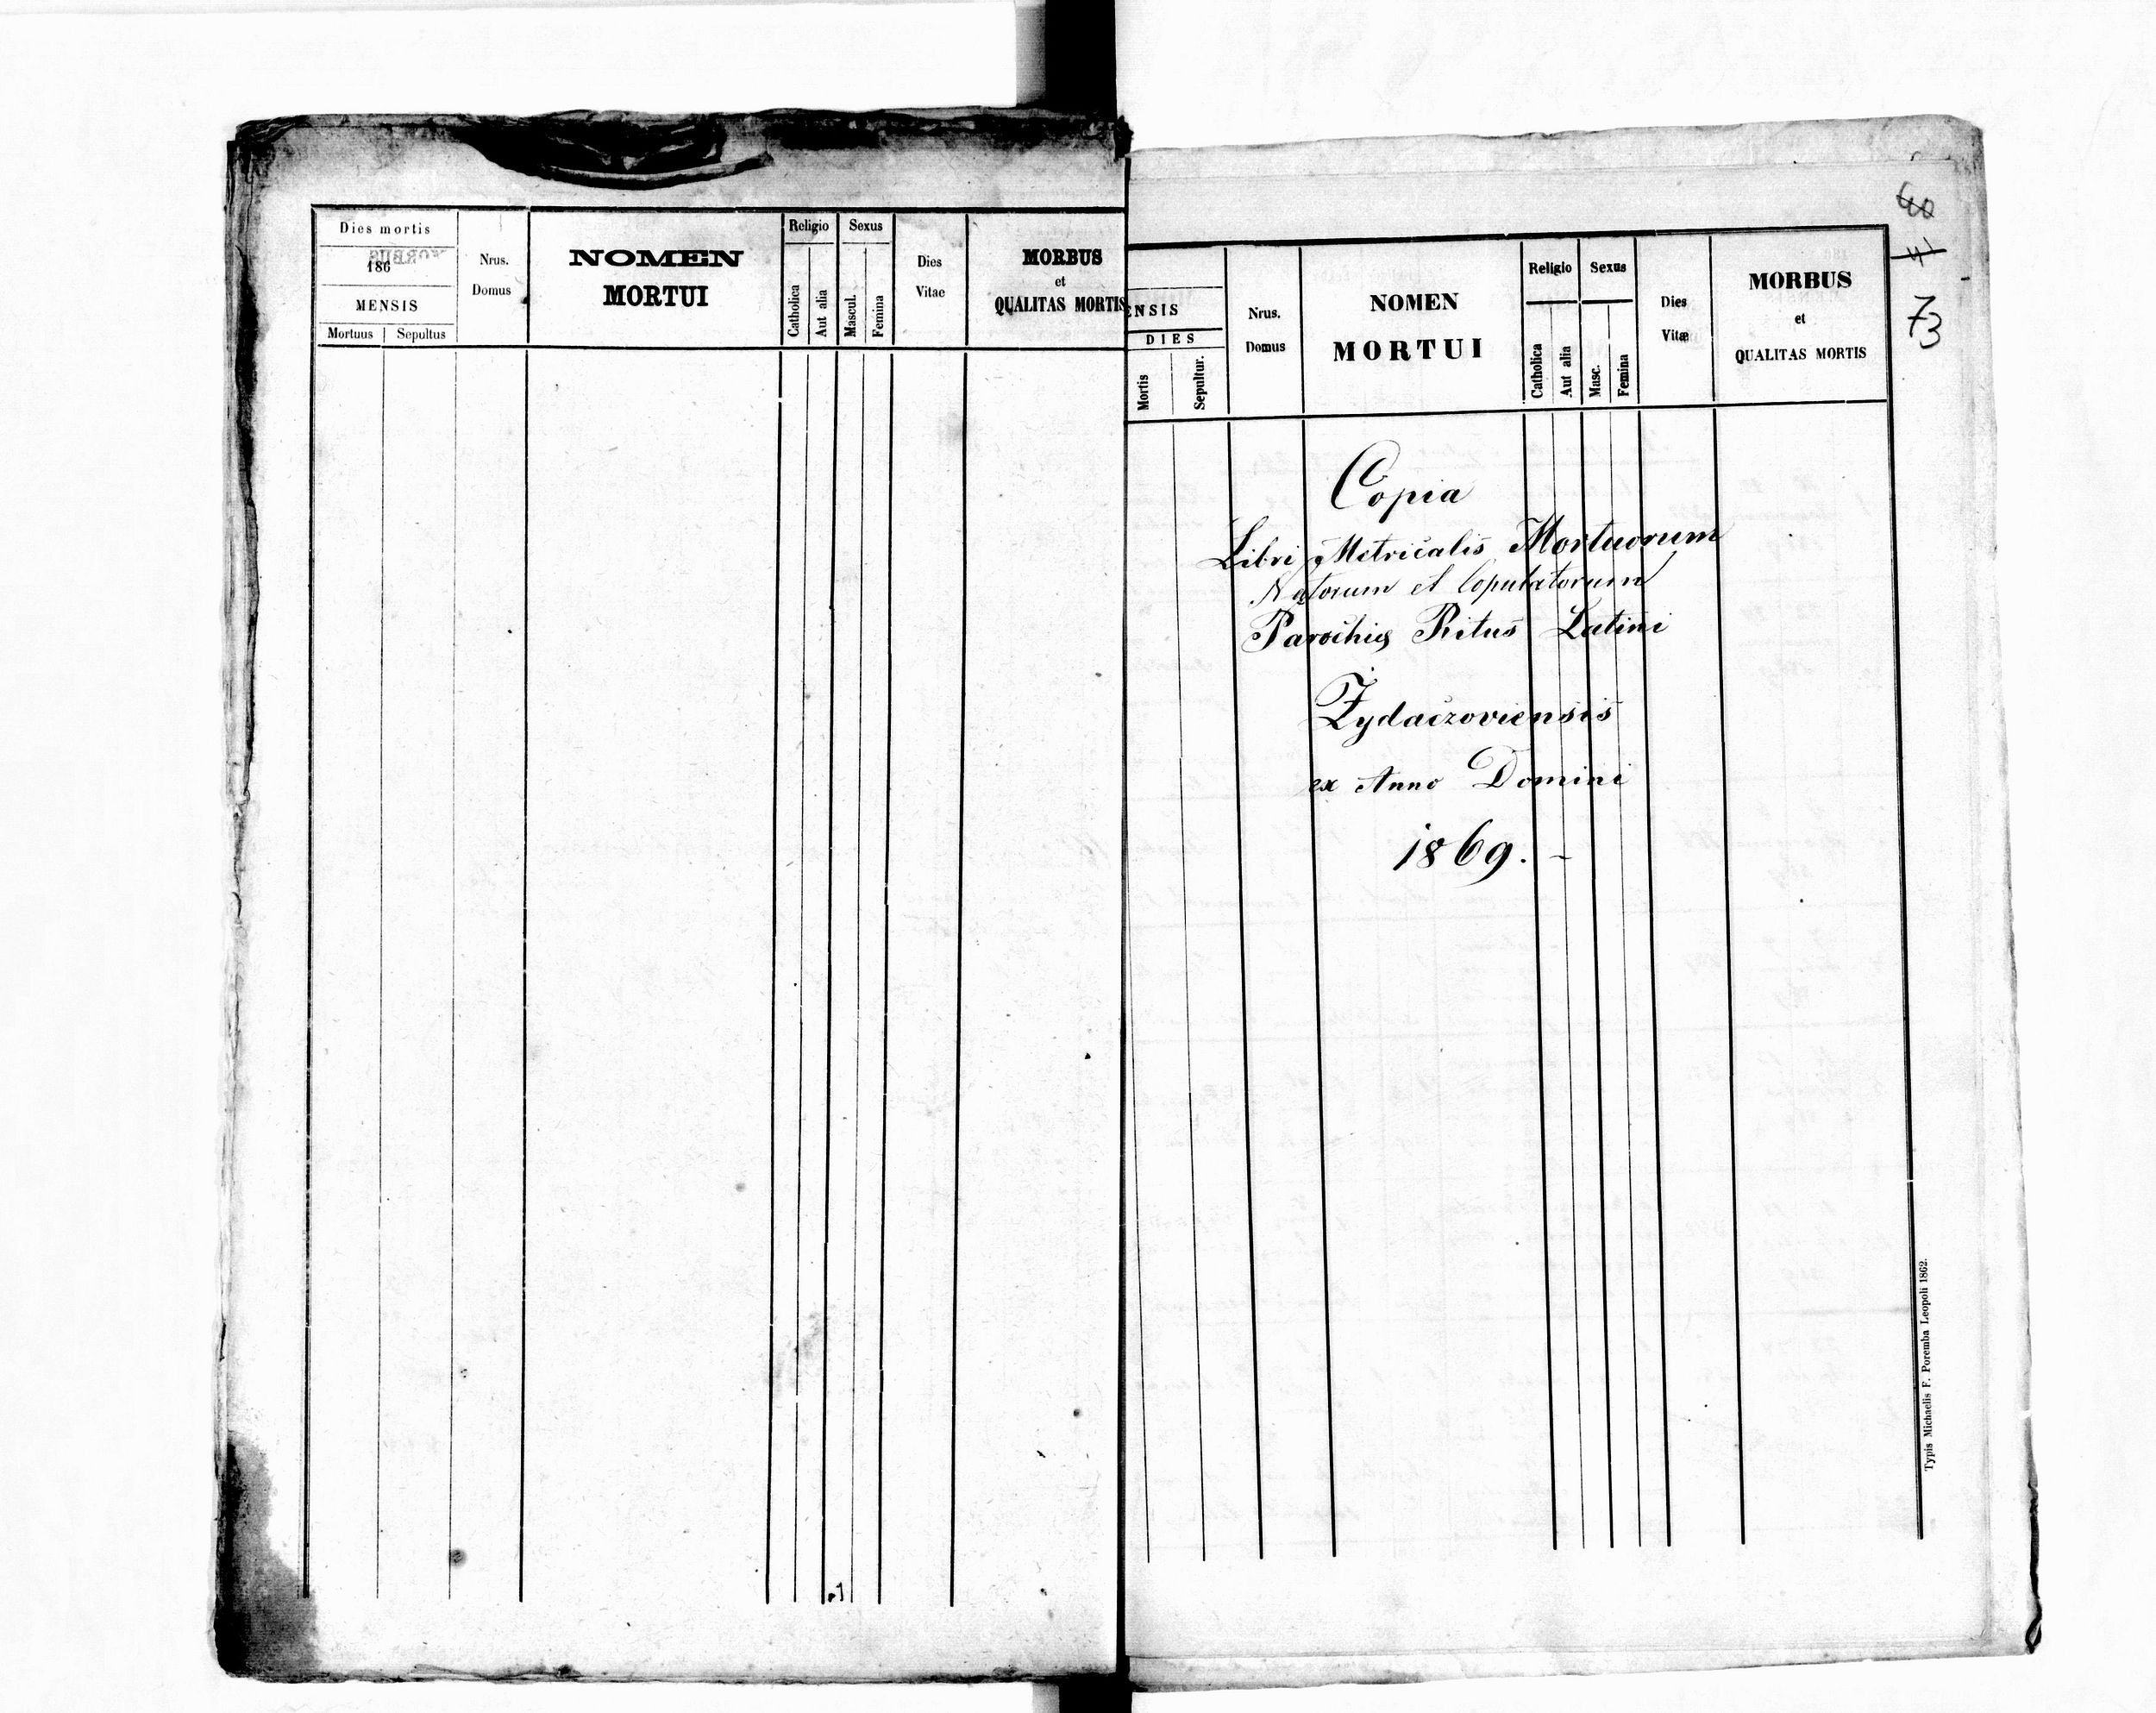 Dies mortis
186
MENSIS
Mortuus Sepultus
Nrus.
Domus
NOMEN
MORTUI
Religio
Catholica
Aut alia
Sexus
Mascul.
Femina
Dies
Vitae
MORBUS
et
QUALITAS MORTIS
ENSIS
DIES
Mortis
Sepultur.
Nrus.
Domus
NOMEN
MORTUI
Religio
Catholica
Aut alia
Sexus
Masc.
Femina
Dies
Vitæ
MORBUS
et
QUALITAS MORTIS
41
73
Copia
Libri Metricalis Mortuorum
Natorum et Copulatorum
Parochię Ritus Latini
Żydaczoviensis
ex Anno Domini
1869. -
Typis Michaelis F. Poremba Leopoli 1862.